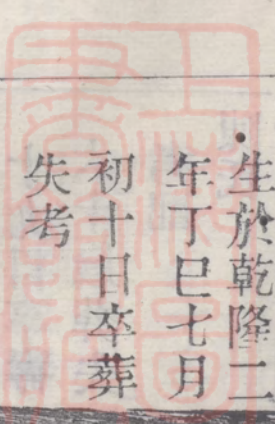 生於乾隆二
年丁巳七月
初十日卒葬
失考